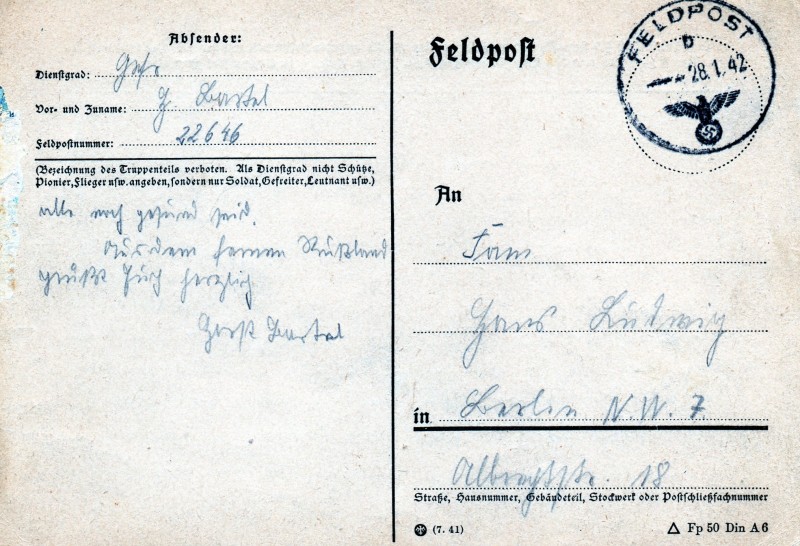 Absender:
Dienstgrad: Gefr
Vor- und Zuname: H Bartel
Feldpostnummer: 22646
(Bezeichnung des Truppenteils verboten. Als Dienstgrad nicht Schütze,
Pionier, Flieger usw. angeben, sondern nur Soldat, Gefreiter, Leutnant usw.)
alle noch gesund seid.
Aus dem fernen Rußland
grüßt Euch herzlich
Horst Bartel
Feldpost
FELDPOST
b
28.1.42
An
Fam
Hans Ludwig
in Berlin N.W. 7
Albrechtstr. 18
Straße, Hausnummer, Gebäudeteil, Stockwerk oder Postschließfachnummer
(7. 41)
Fp 50 Din A 6